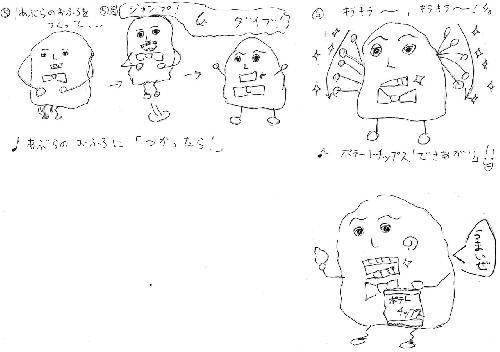 ③あぶらのおふろを
つくって...
ジャンプ!
& ダイブ!
♪あぶらの おふろに「つかったら!」
④キラキラ〜、キラキラ〜!
♪ ポテートチップス「できあがり」!!
うまいぜ
ポテト
チップス